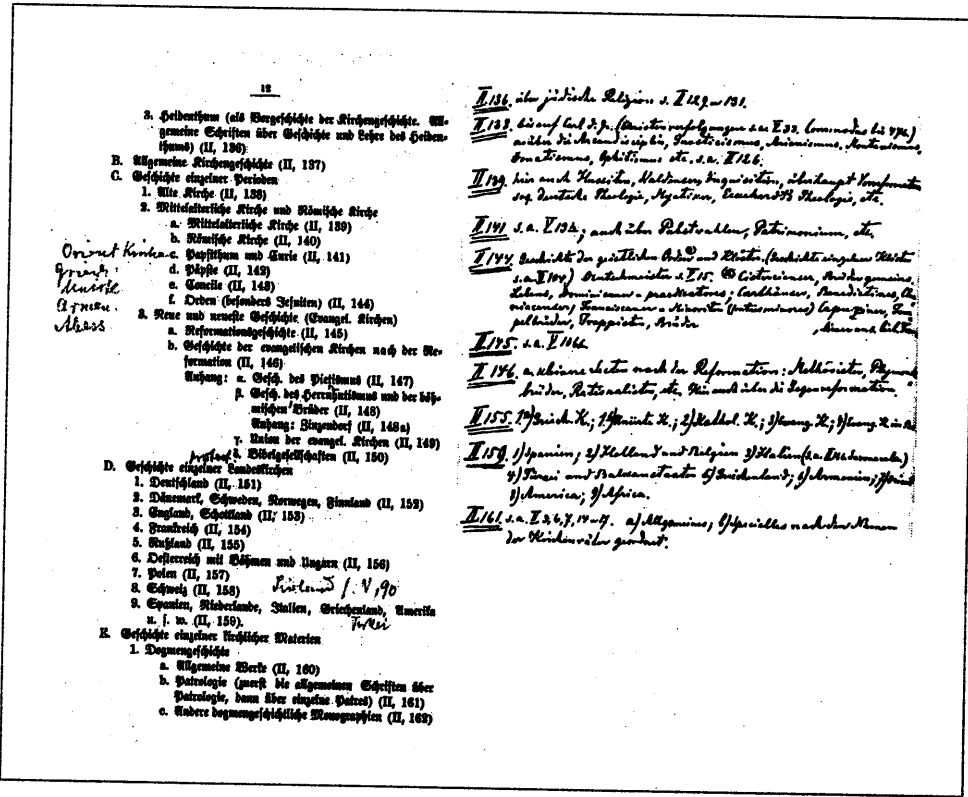 12
3. Heidenthum (als Vorgeschichte der Kirchengeschichte. All-
gemeine Schriften über Geschichte und Lehre des Heiden-
thums) (II, 136)
B. Allgemeine Kirchengeschichte (II, 137)
C. Geschichte einzelner Perioden
1. Alte Kirche (II, 138)
2. Mittelalterliche Kirche und Römische Kirche
a. Mittelalterliche Kirche (II, 139)
b. Römische Kirche (II, 140)
Orient Kirche
c. Papstthum und Curie (II, 141)
d. Päpste (II, 142)
e. Concile (II, 143)
f. Orden (besonders Jesuiten) (II, 144)
3. Neue und neueste Geschichte (Evangel. Kirchen)
a. Reformationsgeschichte (II, 145)
b. Geschichte der evangelischen Kirchen nach der Re-
formation (II, 146)
Anhang: α. Gesch. des Pietismus (II, 147)
β. Gesch. des Herrnhutismus und der böh-
mischen Brüder (II, 148)
Anhang: Zinzendorf (II, 148a)
γ. Union der evangel. Kirchen (II, 149)
δ. Bibelgesellschaften (II, 150)
D. Geschichte einzelner Landeskirchen
1. Deutschland (II, 151)
2. Dänemark, Schweden, Norwegen, Finnland (II, 152)
3. England, Schottland (II, 153)
4. Frankreich (II, 154)
5. Rußland (II, 155)
6. Oesterreich mit Böhmen und Ungarn (II, 156)
7. Polen (II, 157)
8. Schweiz (II, 158)
Livland s. V, 90
9. Spanien, Niederlande, Italien, Griechenland, Amerika
u. s. w. (II, 159).
Türkei
E. Geschichte einzelner kirchlicher Materien
1. Dogmengeschichte
a. Allgemeine Werke (II, 160)
b. Patrologie (zuerst die allgemeinen Schriften über
Patrologie, dann über einzelne Patres) (II, 161)
c. Andere dogmengeschichtliche Monographien (II, 162)
II 136. über jüdische Religion s. II 129 u 131.
II 138. bis auf Carl d. Gr. (Christenverfolgungen s. a. V 33.
Gnosticismus, Arianismus, Montanismus,
Donatismus, Ophitismus etc. s. a. II 126.
II 139. hier auch Hussiten, Waldenser, Inquisition, überhaupt
sog. deutsche Theologie, Mystiker, Theologie, etc.
II 141 s. a. ; auch über Pabstwahlen, Patrimonium, etc.
II 144. Geschichte der geistlichen Orden und Klöster. (Geschichte einzelner Klöster
Deutschmeister s. V 15. Cistercienser, Brüdergemeine,
Dominicaner = praedicatores; Carthäuser, Benedictiner,
Franciscaner = Minoriten Capuziner,
Trappisten, Brüder
II 145. s. a.
II 146. a. kleinere Secten nach der Reformation: Methodisten,
brüder, Rationalisten, etc. Hier auch über die Gegenreformation.
II 155. 1a) Griech. K.; 1b) Unirte K.; 2) Kathol. K.; 3) evang. K.;
II 159. 1) Spanien; 2) Holland und Belgien 3) Italien
4) Türkei und Balcanstaaten 5) Griechenland; 6) Armenien; 7)
8) America; 9) Africa.
II 161. s. a. a) Allgemeines; b) Specielles nach den Namen
der Kirchenväter geordnet.